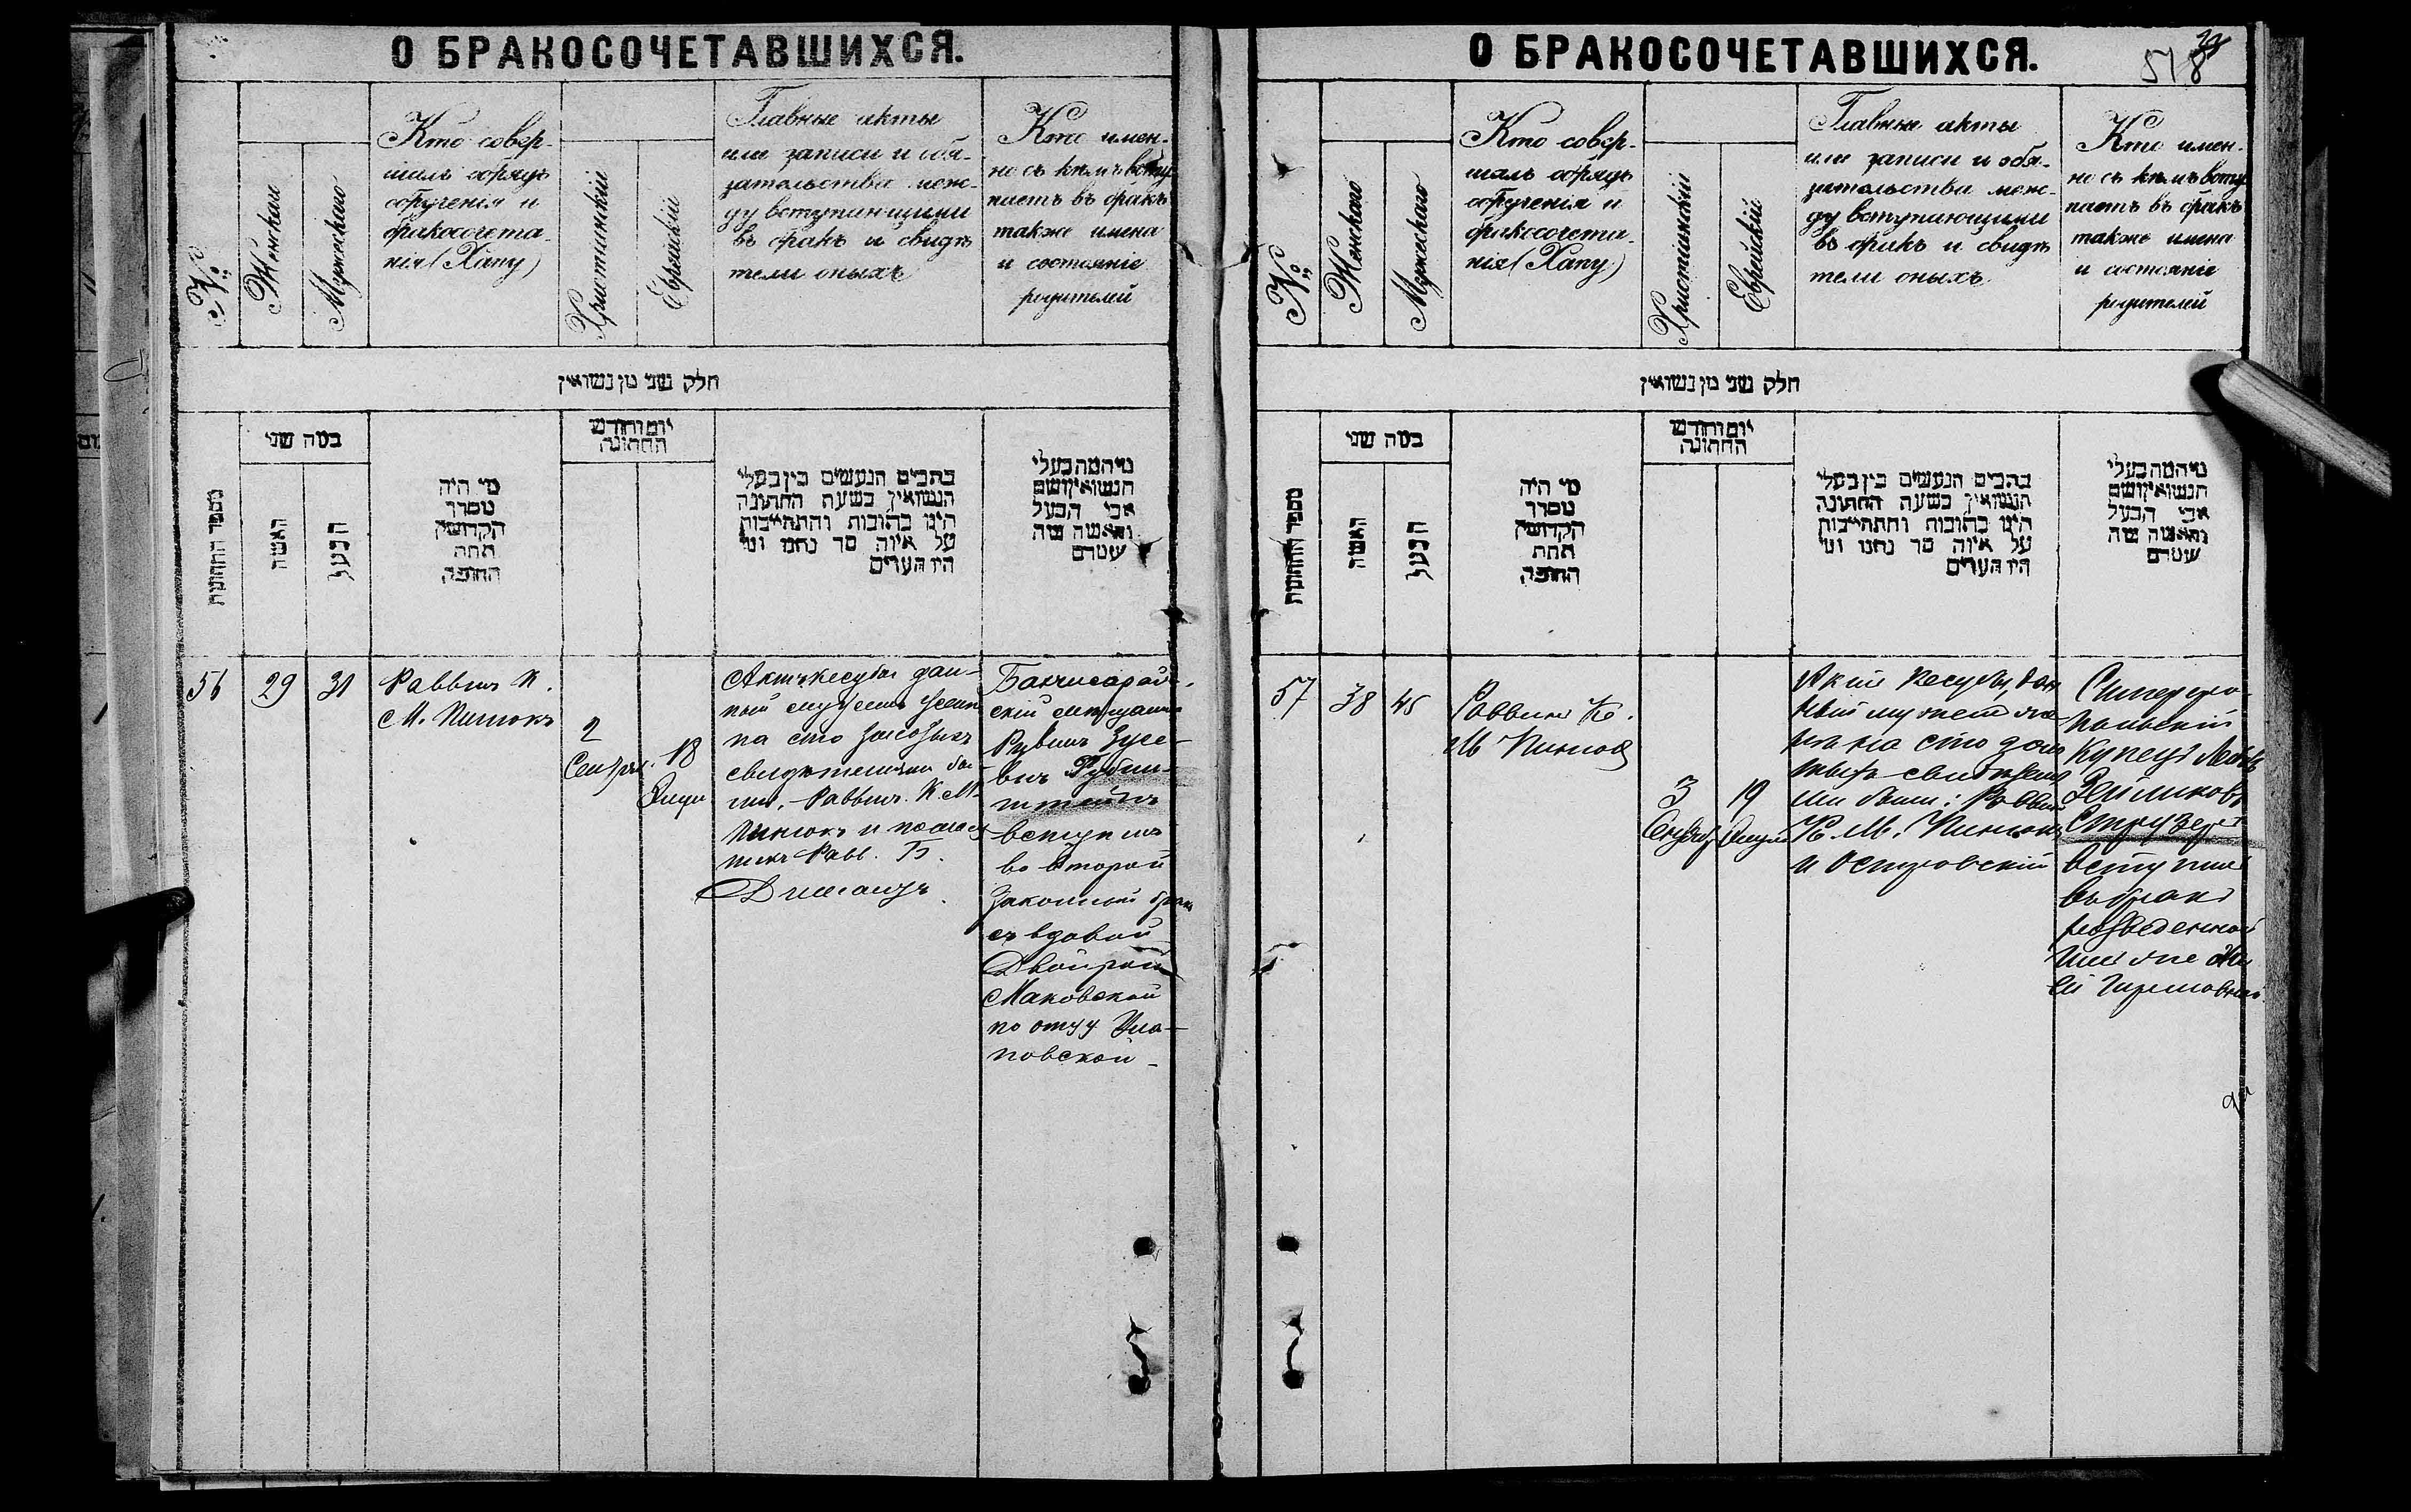 О БРАКОСОЧЕТАВШИХСЯ.
№
Женскаго
Мужескаго
Кто совер-
шалъ обрядъ
обрученія и
бракосочета-
нія (Хапу)
Христіанскій
Еврейскій
Главные акты
или записи и обя-
зательства меж-
ду вступающими
въ бракъ и свидѣ
тели оныхъ
Кто имен-
но съ кѣмъ всту
паетъ въ бракъ
также имена
и состояніе
родителей
חלק שני מן נשואין
מספר החתונות
כמה שני
האשה
הבעל
מי היה
מסדר
הקדושין
תחת
החופה
יום וחודש
החתונה
כתבים הנעשים בין בעלי
הנשואין בשעת החתונה
היגו כתובות והתחייבות
על איזה סך נתנו ומי
היו העדים
מי המה בעלי
הנשואין ושם
אבי הבעל
והאשה מה
שמם
56
29
31
Раввинъ К.
М. Пинтокъ
2
Сентяб.
18
Элула
Актъ кесуба дан-
ный мужемъ женѣ
на сто золотыхъ
свидѣтелями бы-
ли. Раввинъ К. М.
Пинтокъ и помощ
никъ Равв. Б.
Бахчисарай-
скій мѣщанинъ
Рувинъ
Рубин-
штейнъ
вступилъ
во второй
законный бракъ
съ вдовой
Двойрой
Маковской
по отцу
повской
О БРАКОСОЧЕТАВШИХСЯ.
518
№
Женскаго
Мужескаго
Кто совер-
шалъ обрядъ
обрученія и
бракосочета-
нія (Хапу)
Христіанскій
Еврейскій
Главные акты
или записи и обя-
зательства меж-
ду вступающими
въ бракъ и свидѣ
тели оныхъ
Кто имен-
но съ кѣмъ всту
паетъ въ бракъ
также имена
и состояніе
родителей
חלק שני מן נשואין
מספר החתונות
כמה שני
האשה
הבעל
מי היה
מסדר
הקדושין
תחת
החופה
יום וחודש
החתונה
כתבים הנעשים בין בעלי
הנשואין בשעת החתונה
היגו כתובות והתחייבות
על איזה סך נתנו ומי
היו העדים
מי המה בעלי
הנשואין ושם
אבי הבעל
והאשה מה
שמם
57
38
45
Раввинъ К.
М Пинтокъ
3
Сентяб
19
Элула
Актъ кесубы, дан
ный мужемъ же
нѣ на сто золо
тыхъ свидѣтеля
ми были: Раввинъ
К. М. Пинтокъ
и Островскій
Симферо-
польскій
Купецъ
вступилъ
въ бракъ
разведенной